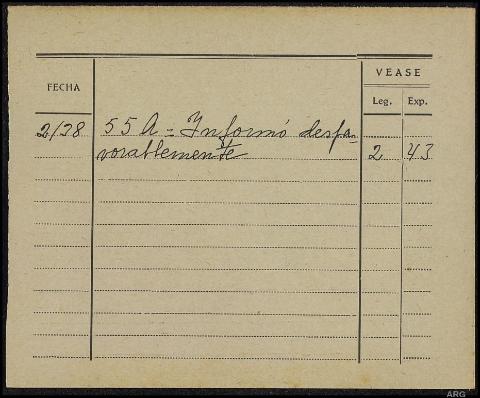 VEASE
FECHA
Leg. Exp.
2/28 55 A = Informó desfa-
vorablemente 2 43
ARG